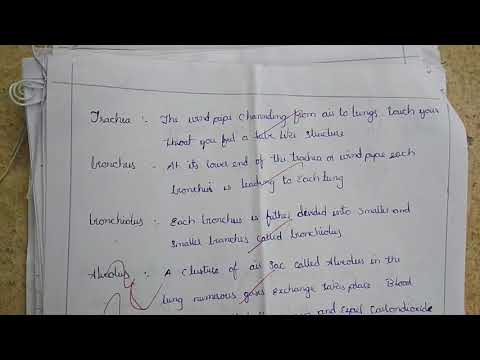 Trachea :- The wind pipe channding from air to lungs. Touch your
throat you feel a tube like structure
bronchus :- At its lower end of the trachea or wind pipe each
bronchus is leading to each lung
bronchiolus :- Each bronchus is futher devided into smaller and
smaller branches called bronchiolus
Alveolus :- A clusture of air sac called Alveolus in the
lung numerous gases exchange takes place Blood
and expel Carbondioxide